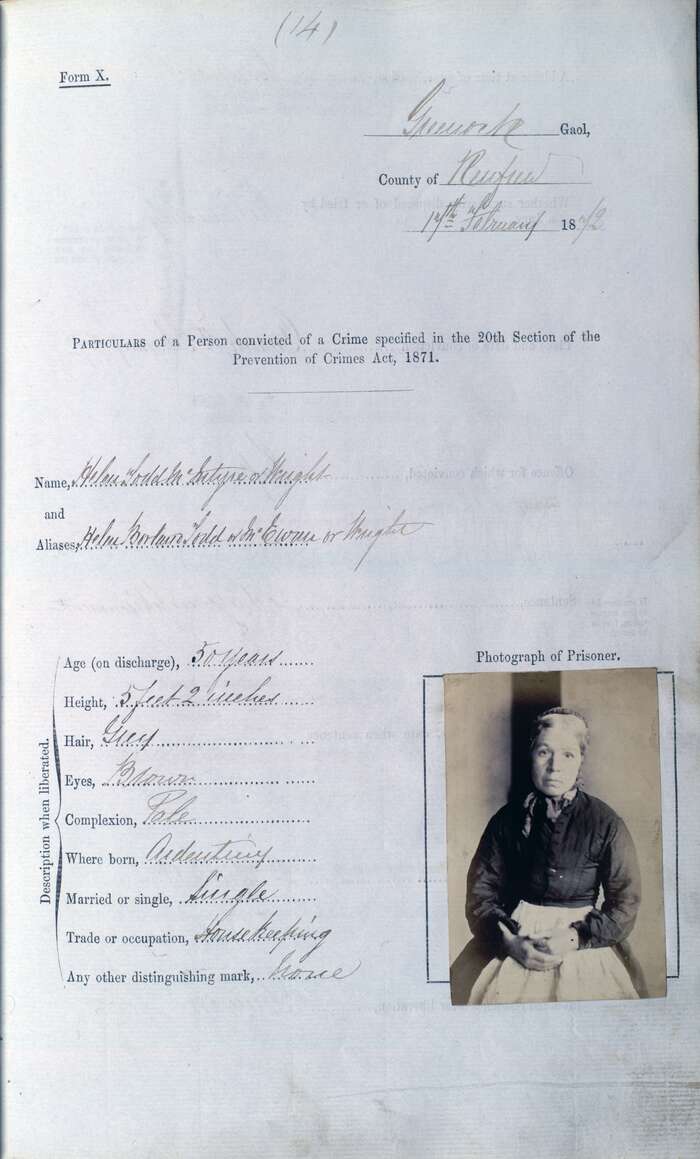 (14)
Form X.
Greenock Gaol,
County of Renfrew
17th February 1872
PARTICULARS of a Person convicted of a Crime specified in the 20th Section of the
Prevention of Crimes Act, 1871.
Name, Helen Todd McIntyre or Wright
and
Aliases, Helen Todd or McEwan or Wright
Photograph of Prisoner.
Description when liberated.
Age (on discharge), 50 years
Height, 5 feet 2 inches
Hair, Grey
Eyes, Brown
Complexion, Pale
Where born, Ardentiny
Married or single, Single
Trade or occupation, Housekeeping
Any other distinguishing mark, None